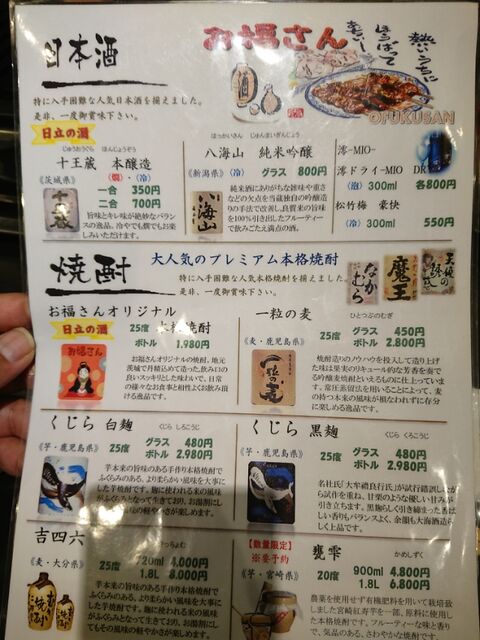 日本酒
お福さん
熱いうちに
ほうばって
OFUKUSAN
特に入手困難な人気日本酒を揃えました。
是非、一度御賞味下さい。
日立の酒
じゅうおうぐら ほんじょうぞう
十王蔵 本醸造
《茨城県》 (燗)・(冷)
一合 350円
二合 700円
旨味とキレ味が絶妙なバラン
スの逸品。冷やでも燗でもお楽
しみいただけます。
はっかいさん じゅんまいぎんじょう
八海山 純米吟醸
《新潟県》(冷) グラス 800円
純米酒にありがちな雑味や重さ
などの欠点を当蔵独自の吟醸造
りの手法で改善し、良質米の旨味
を100%引き出したフルーティー
で飲みごたえ満点の酒。
澪-MIO-
澪ドライ-MIO DRY
(泡) 300ml 各800円
松竹梅 豪快
(冷) 300ml 550円
焼酎
大人気のプレミアム本格焼酎
特に入手困難な人気本格焼酎を揃えました。
是非、一度御賞味下さい。
なかむら
魔王
お福さんオリジナル
日立の酒
25度 本格焼酎
ボトル 1,980円
お福さん
お福さんオリジナルの焼酎。地元
茨城で丹精込めて造った、飲み口の
良いスッキリとした味わいで、日常
の様々なお食事と相性よくお飲み頂
ける逸品です。
一粒の麦
ひとつぶのむぎ
《麦・鹿児島県》 25度
グラス 450円
ボトル 2,800円
焼酎造りのノウハウを投入して造り上げ
た味は果実のリキュール的な芳香を奏で
る吟醸麦焼酎といえるものに仕上ています。
常圧蒸留法を用いることによって、麦
の持つ本来の風味が損なわれずに存分
に楽しめる逸品です。
くじら 白麹
くじら しろこうじ
《芋・鹿児島県》 25度
グラス 480円
ボトル 2,980円
芋本来の旨味のある手作り本格焼酎で
ふくらみのある、よりまろやかい風味を大事に
した芋焼酎です。麹に使われる米の風味
がふくらみとなって生きており、お湯割に
しても味の軽やかさが楽しめます。
くじら 黒麹
くじら くろこうじ
《芋・鹿児島県》 25度
グラス 480円
ボトル 2,980円
名杜氏「大牟禮良行氏」が試行錯誤しな
がら試作を重ね、甘栗のような優しい甘みが
引き立ちます。黒麹らしく引き締まった香ば
しい香りもバランスよく、余韻も大海酒造ら
しく上品です。
吉四六
《麦・大分県》 25度
720ml 4,000円
1.8L 8,000円
芋本来の旨味のある手作り本格焼酎で
ふくらみのある、より風味を大事に
した芋焼酎です。麹に使われる米の風味
がふくらみとなって生きており、お湯割に
してもその風味の軽やかさが楽しめます。
【数量限定】
※要予約
甕雫
かめしずく
《芋・宮崎県》 20度
900ml 4,800円
1.8L 6,800円
農薬を使用せず有機肥料を用いて栽培致
しました宮崎紅寿芋を一部、原料に使用し
た本格焼酎です。フルーティーな味と香り
で、気品のある、まろやかな焼酎です。